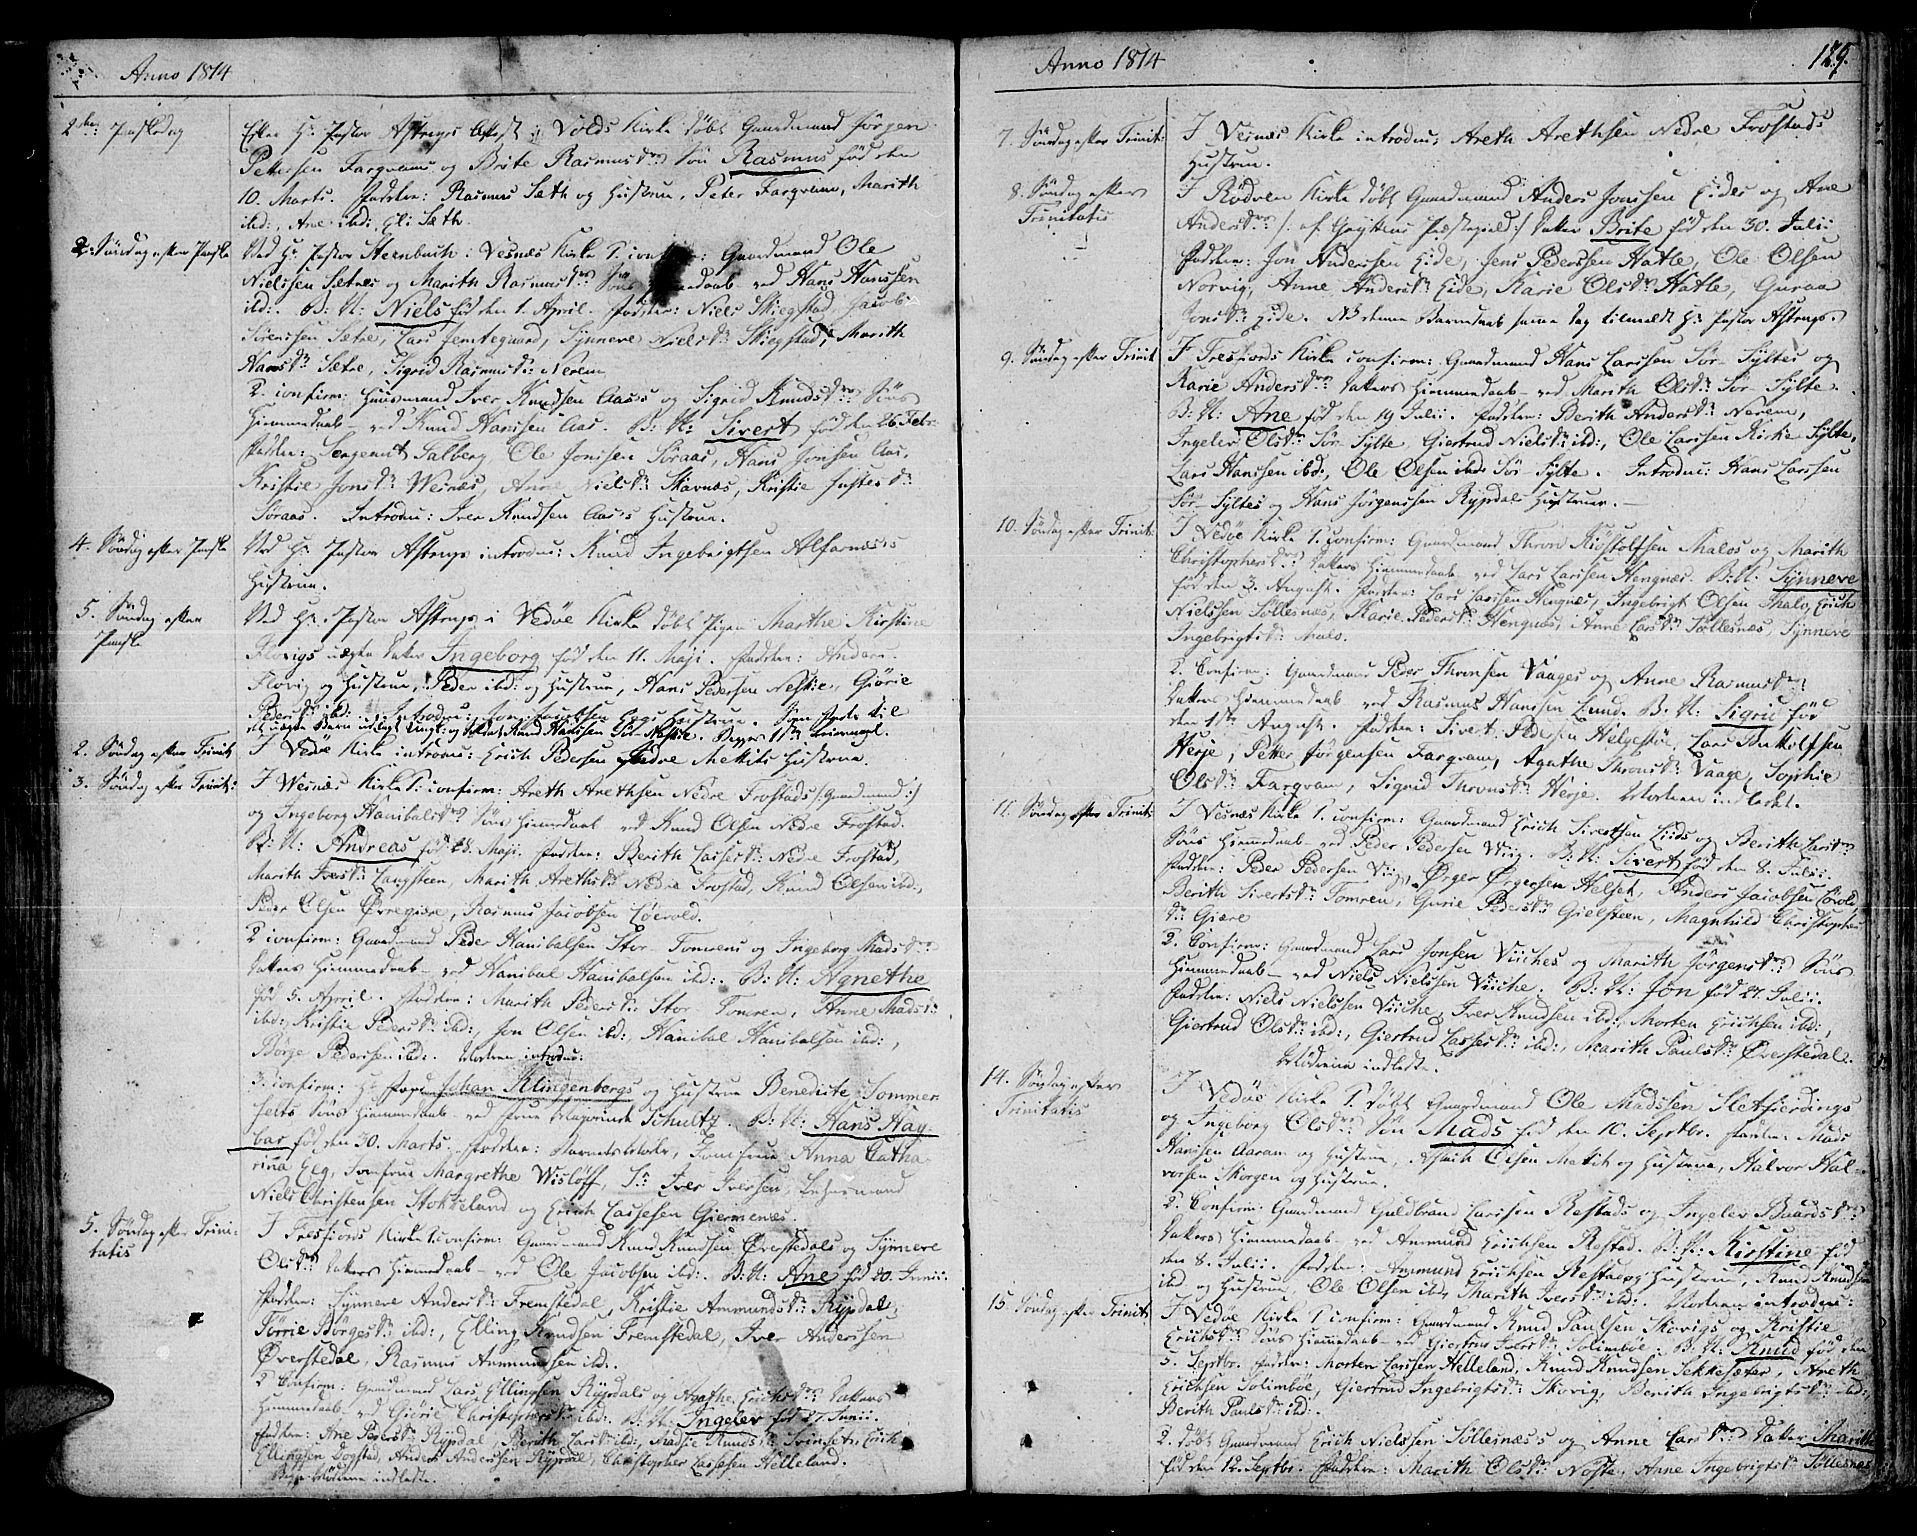 Anno 1814
2den Paaskedag
Efter Hr: Pastor Astrups Attest i Volds Kirke døbt Gaardmand Jörgen
Pettersen Fargvam og Brite Rasmusdrs Sön Rasmus föd den
10. Marts. Faddere: Rasmus Sæth og Hustrue, Peter Fargvam, Marith
ibd:, Ane ibd: Eli Sæth.
2. Söndag efter Paaske
Ved Hr: Pastor Sternbach i Vesnæs Kirke 1. confirm: Gaardmand Ole
Nielssen Sætres og Marith Rasmusdrs Söns Hiemmedaab ved Hans Hanssen
ibd. B: N: Niels föd den 1. April. Faddere: Niels Skiegstad, Jacob
Sörenssen Sætre, Lars Jemtegaard, Synneve Nielsdr Skiegstad, Marith
Hansdr Sætre, Sigrid Rasmusdr: Nerem
2. confirm: Huusmand Iver Knudsen Aas's og Sigrid Knudsdrs Söns
Hiemmedaab - ved Knud Hanssen Aas. B: N: Sivert föd den 26 Febr:
Faddere: Sergeant Salberg, Ole Jonssen Söraas, Hans Jonsen Aas,
Kristie Jonsdr: Wesnæs, Anne Nielsdr: Skavnæs, Kristie
Söraas. Introdu: Iver Knudsen Aas's Hustrue.
4. Söndag efter Paaske
Ved Hr: Pastor Astrup introdu: Knud Ingebrigtsen Alfarnæs's
Hustrue.
5. Söndag efter
Paaske
Ved Hr: Pastor Astrup i Vedöe Kirke döbt Pigen Marthe Kirstine
Flovigs uægte Datter Ingeborg föd den 11. Maji. Faddere: Anders
Flovig og Hustrue, Peder ibd: og Hustrue, Hans Pedersen Neskie, Giörie
Pedersdr ibd:. Introdu:
2. Söndag efter Trinit:
I Vedöe Kirke introdu: Erich Pedersen Mekits Hustrue.
3. Söndag efter Trinit:
I Wesnæs Kirke 1. confirm: Areth Arethsen Nedre Frostads /: Gaardmand :/
og Ingeborg Hanibalsdrs Söns Hiemmedaab ved Knud Olsen Nedre Frostad.
B: N: Andreas föd 28. Maji. Faddere: Berith Lassesdr: Nedre Frostad,
Marith Iversdr: Langsteen, Marith Arethsdr: Nedre Frostad, Knud Olsen ibd:,
Peder Olsen Övregiære, Rasmus Jacobsen Löevold.
2 confirm: Gaardmand Peder Hanibalsen Stor Tomrens og Ingeborg Madsdrs
Datters Hiemmedaab - ved Hanibal Hanibalsen ibd:. B: N: Agnethe
föd 5. Aprril. Faddere: Marith Pedersdr: Stor Tomren, Anne Madsdr:
ibd:, Kristie Pedersdr: ibd:, Jon Olsen ibd:, Hanibal Hanibalsen ibd:,
Börge Pedersen ibd:. Modren introdu:
3. confirm: Hr Johan Klingenbergs og Hustrue Benedicte Sommer
felts Söns Hiemmedaab - ved Schultz. B: N: Hans Hag-
bar föd den 30. Marts. Faddere: Jomfrue Anna Catha-
rina Eeg, Jomfrue Margrethe Wislöff, Sr: Iver Iversen, Lehnsmand
Niels Christensen Stokkeland og Erich Lassesen Giermenæs.
5. Söndag efter Trini-
tatis
I Tresfiords Kirke 1. confirm: Gaardmand Knud Knudsen Överstedals og Synneve
Olsdrs Datters Hiemmedaab - ved Ole Jacobsen ibd:. B: N: Ane föd 20. Junii.
Faddere: Synneve Andersdr: Fremstedal, Kristie Ammundsdr: Rypdal,
Sörrie Börgesdr: ibd:, Elling Knudsen Fremstedal, Iver Andersen
Överstedal, Rasmus Ammundsen ibd:.
2 Confirm: Gaardmand Lars Ellingsen Rypdals og Agathe Erichsdrs Datters
Hiemmedaab ved Giörie Christophersdr: ibd:. B: N: Ingelev föd 27. Junii.
Faddere: Ane Pedersdr: Rypdal, Berith Larsdr: ibd:, Madsie Knudsdr: Svinset, Erich
Ellingsen Dogstad, Anders Andersen Rypdal, Christopher Lassesen Helleland.
Begge Mödrene indledte.
Anno 1814
129.
7. Söndag efter Trinit:
I Vesnæs Kirke introdu: Areth Arethsen Nedre Frostads
Hustrue.
8. Söndag efter
Trinitatis
I Rödven Kirke döbt Gaardmand Anders Jonssen Eides og Ane
Andersdrs /: af Gryttens Præstegield :/ Datter Brite föd den 30. Julii
Faddere: Jon Andersen Eide, Jens Pederssen Hatle, Ole Olsen
Norvig, Anne Andersdr: Eide, Karie Olsdr: Hatle, Guraa
Jonsdr: Eide. NB denne Barnedaab samme Dag tilmeldt Hr: Pastor Astrup.
9. Söndag efter Trinit
I Tresfiords Kirke confirm: Gaardmand Hans Larssen Sör Syltes og
Karie Andersdrs Datters Hiemmedaab - ved Marith Olsdr: Sör-Sylte.
B: N: Ane föd den 19 Julii. Faddere: Berith Andersdr: Nerem,
Ingelev Olsdr: Sör Sylte, Giertrud Nielsdr: ibd:, Ole Larssen Kirke Sylte,
Lars Hanssen ibd:, Ole Olsen ibd: Sör-Sylte. Introdu: Hans Larssen
Sör-Syltes og Hans Jörgenssen Rypdals Hustruer. -
10. Söndag efter Trinit:
I Vedöe Kirke 1. confirm: Gaardmand Thron Kiöstolfsen Malos og Marith
Christophersdrs Datters Hiemmedaab - ved Lars Larssen Hengnæs. B: N: Synneve
föd den 3. August. Faddere: Lars Larssen Hengnæs, Ingebrigt Olsen Malo, Erich
Nielssen Söllesnæs, Marie Pedersdr: Hengnæs, Anne Larsdr: Söllesnæs, Synneve
Ingebrigtsdr: Malo.
2. Confirm: Gaardmand Peder Thronsen Vaages og Anne Rasmusdrs
Datters Hiemmedaab ved Rasmus Hanssen Lund. B: N: Sigrid föd
den 1ste August. Faddere: Sivert Pedersen Helgestöe, Lars Botolfsen
Herje, Petter Jörgensen Fargvam, Agathe Thronsdr: Vaage, Sophie
Olsdr: Fargvam, Sigrid Thronsdr: Herje. Modren indledet.
11. Söndag efter Trinit:
I Vesnæs Kirke 1. confirm: Gaardmand Erich Sivertsen Eids og Berith Larsdrs
Söns Hiemmedaab - ved Peder Pedersen Viig. B: N: Sivert föd den 8. Julii.
Faddere: Peder Pedersen Viig, Örger Örgersen Helset, Anders Jacobsen Lövold
Berith Sivertsdr: Tomren, Gurie Pedersdr: Gielsteen, Magnhild Christopher
dr: Giære
2. Confirm: Gaardmand Lars Jonsen Viiches og Marith Jörgensdrs Söns
Hiemmedaab - ved Niels Nielssen Viiche. B: N: Jon föd 27. Julii.
Faddere: Niels Nielssen Viiche, Iver Knudsen ibd:, Morten Erichsen ibd:,
Giertrud Olsdr: ibd:, Giertrud Lassesdr: ibd:, Marith Paulsdr: Överstedal.
Mödrene indledte.
14. Söndag efter
Trinitatis
I Vedöe Kirke 1. döbt Gaardmand Ole Madssen Sletfierdings
og Ingeborg Olsdrs Sön Mads föd den 10. Septbr. Faddere: Mads
Hanssen Aaram og Hustrue, Asach Olsen Mekit og Hustrue, Halvor Hal-
vorsen Skorgen og Hustrue.
2. Confirm: Gaardmand Guldbrand Larssen Restads og Ingelev Baardsdrs
Datters Hiemmedaab - ved Ammund Erichsen Restad. B: N: Kirstine föd
den 8. Julii. Faddere: Ammund Erichsen Restad og Hustrue, Knud Amundsen
ibd. og Hustrue, Ole Olsen ibd, Marith Iversdr: ibd:. Modren introdu:
15. Söndag efter Trinit
I Vedöe Kirke 1 confirm: Gaardmand Knud Paulsen Skovigs og Kristie
Erichsdrs Söns Hiemmedaab - ved Giertrud Iversdr: Solimböe. B: N: Knud föd den
5. Septbr. Faddere: Morten Larssen Helleland, Knud Knudsen Sekkesæter, Areth
Erichsen Solimböe, Giertrud Ingebrigtsdr: Skovig, Berith Ingebrigtsdr: ibd:,
Berith Paulsdr: ibd:.
2. döbt Gaardmand Erich Nielssen Söllesnæs's og Anne Larsdrs Datter Marith
föd den 12. Septbr. Faddere: Marith Olsdr: Noste, Anne Ingebrigtsdr: Söllesnæs